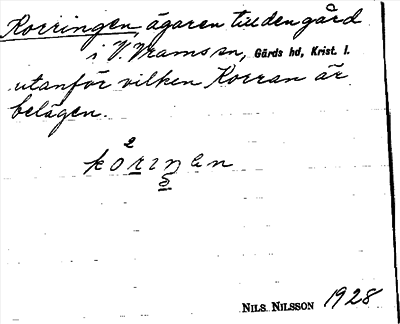 Korringen, ägaren till den gård
i V. Vrams sn, Gärds hd, Krist. l.
utanför vilken Korran är
belägen.
NILS NILSSON 1928